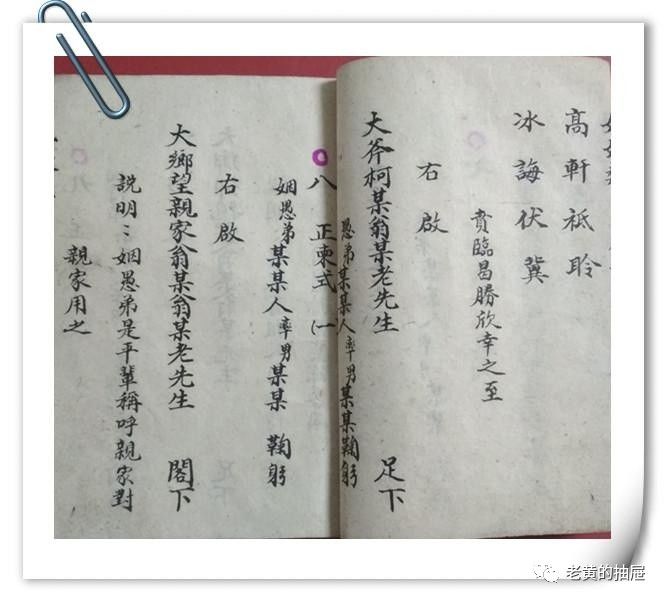 高軒祗聆
冰誨伏冀
賁臨曷勝欣幸之至
右啟
大斧柯某翁某老先生 足下
愚弟某某人率男某某鞠躬
八 正柬式(一
姻愚弟某某人率男某某 鞠躬
右啟
大鄉望親家翁某翁某老先生 閣下
説明:姻愚弟是平輩稱呼親家對
親家用之
老黄的抽屉